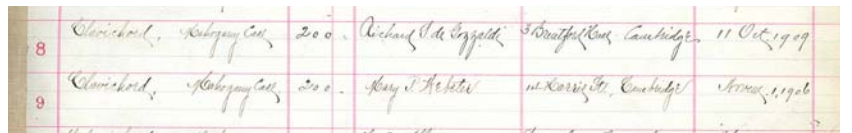 8 Clavichord, Mahogany Case 200 - Richard S. de Gozzaldi 3 Brentford Hall - Cambridge 11 Oct, 1909
9 Clavichord, Mahogany Case 200 - Mary P. Webster Harris St., Cambridge 1, 1906